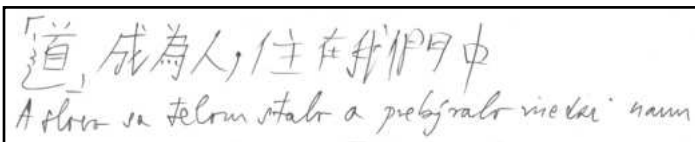 「道」成為人，住在我們中
A slovo sa telom stalo a prebývalo medzi nami